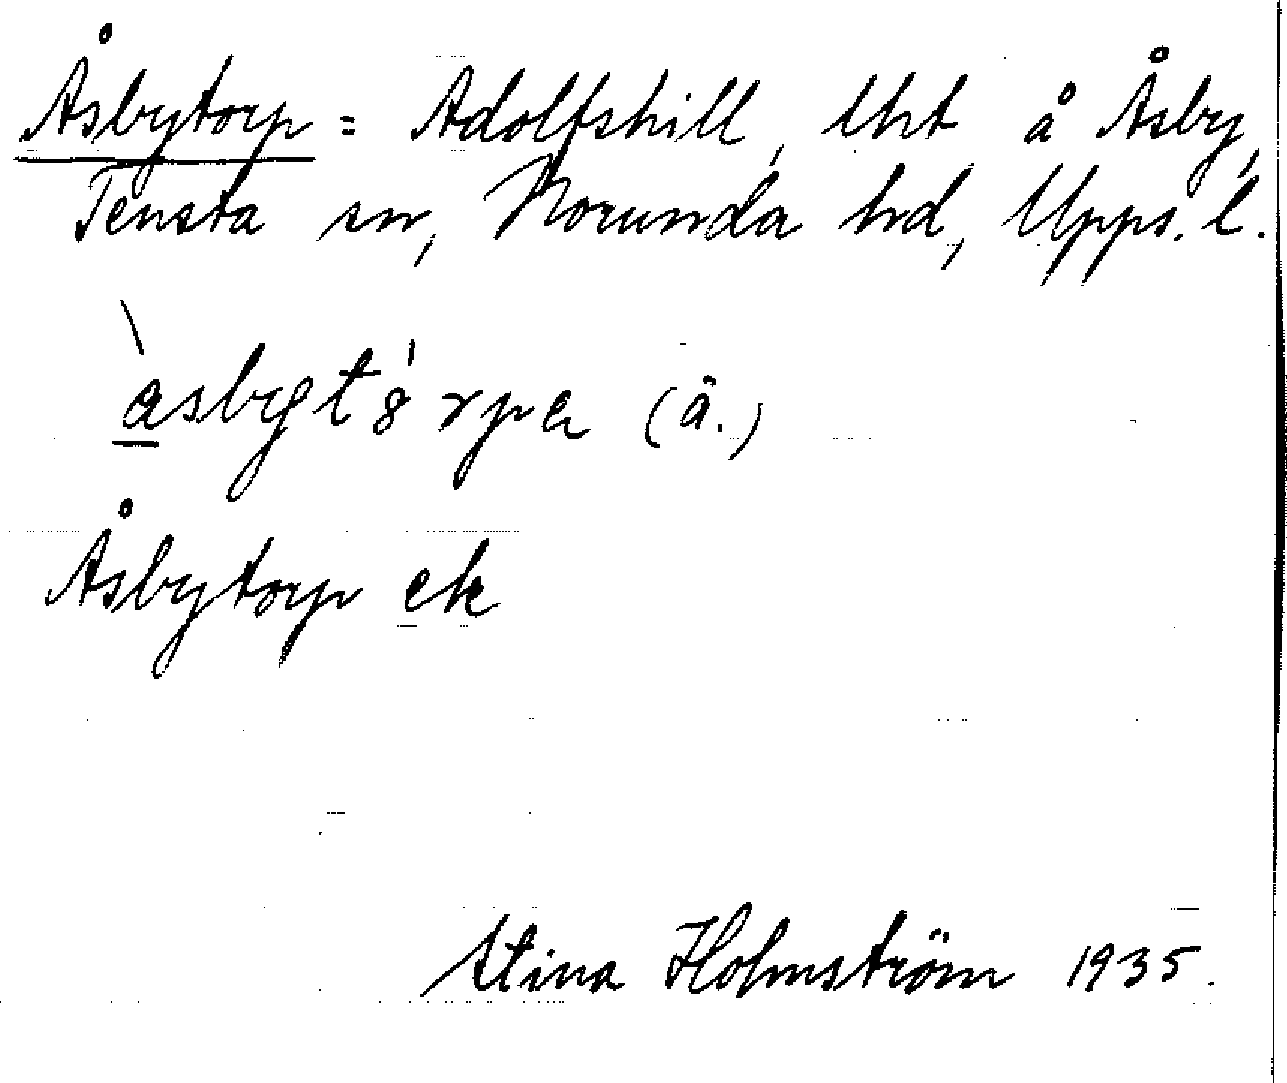 Åsbytorp = Adolfshill, lht å Åsby,
Tensta sn, Norunda hd, Upps. l.
(ä.)
Åsbytorp ek
Stina Holmström 1935.